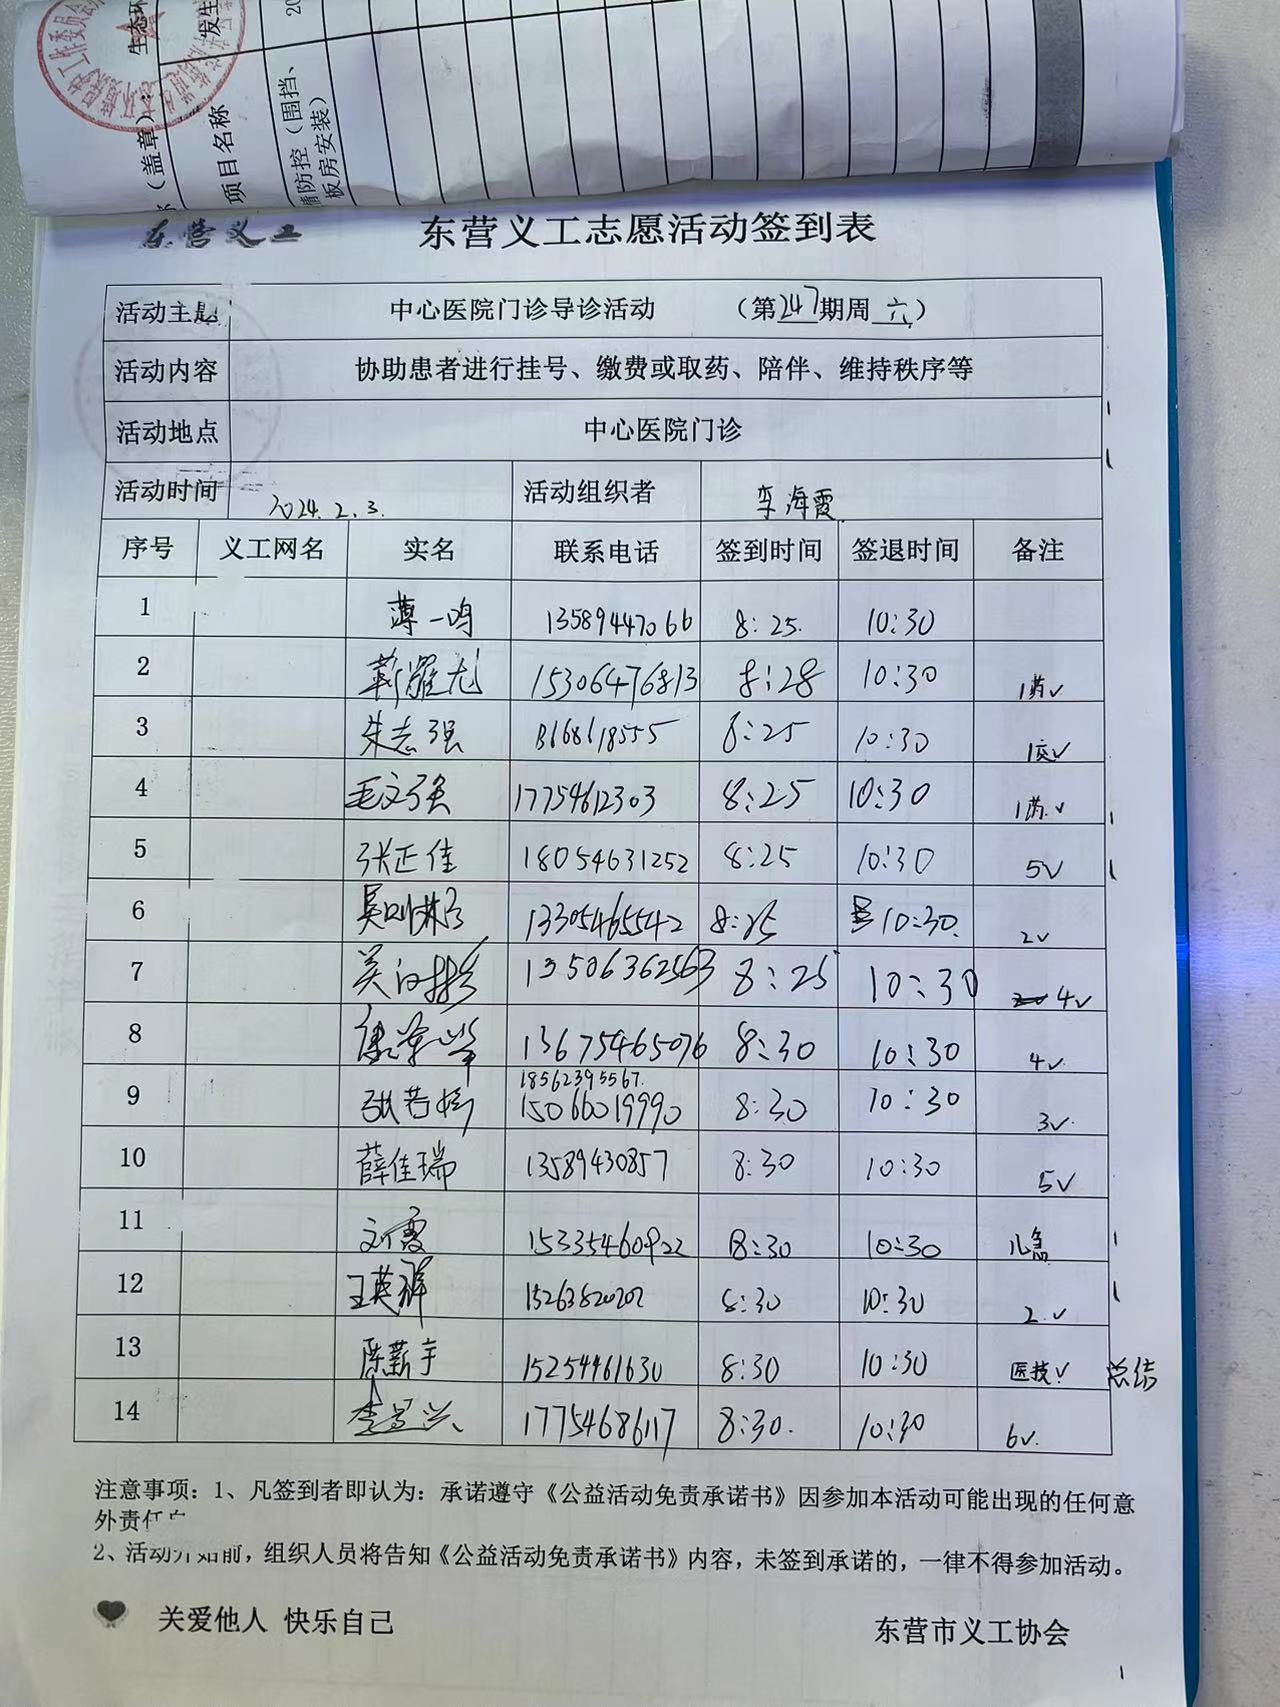 （盖章）：
生态环
项目名称
发生
情防控（围挡、
板房安装）
20
东营义工
东营义工志愿活动签到表
活动主题 中心医院门诊导诊活动 （第247期周六）
活动内容 协助患者进行挂号、缴费或取药、陪伴、维持秩序等
活动地点 中心医院门诊
活动时间 2024.2.3. 活动组织者 李海霞
序号 义工网名 实名 联系电话 签到时间 签退时间 备注
1 薄一鸣 13589447066 8:25 10:30
2 靳耀龙 15306476813 8:28 10:30 1药√
3 朱志强 13168618555 8:25 10:30
4 毛文强 17754612303 8:25 10:30 1药√
5 张正佳 18054631252 8:25 10:30 5√
6 13305465542 8:25 10:30. 2√
7 13506362563 8:25 10:30 4√
8 13675465076 8:30 10:30 4√
18562395567.
9 张若 15066019990 8:30 10:30 3√
10 薛佳瑞 13589430857 8:30 10:30 5√
11 刘霞 15335460922 8:30 10:30 儿急
12 王英 15263820202 8:30 10:30 2.√
13 陈薪宇 15254461630 8:30 10:30 医技√ 总结
14 李 兴 17754686117 8:30. 10:30 6√.
注意事项：1、凡签到者即认为：承诺遵守《公益活动免责承诺书》因参加本活动可能出现的任何意
外责任自
2、活动开始前，组织人员将告知《公益活动免责承诺书》内容，未签到承诺的，一律不得参加活动。
关爱他人 快乐自己
东营市义工协会
1